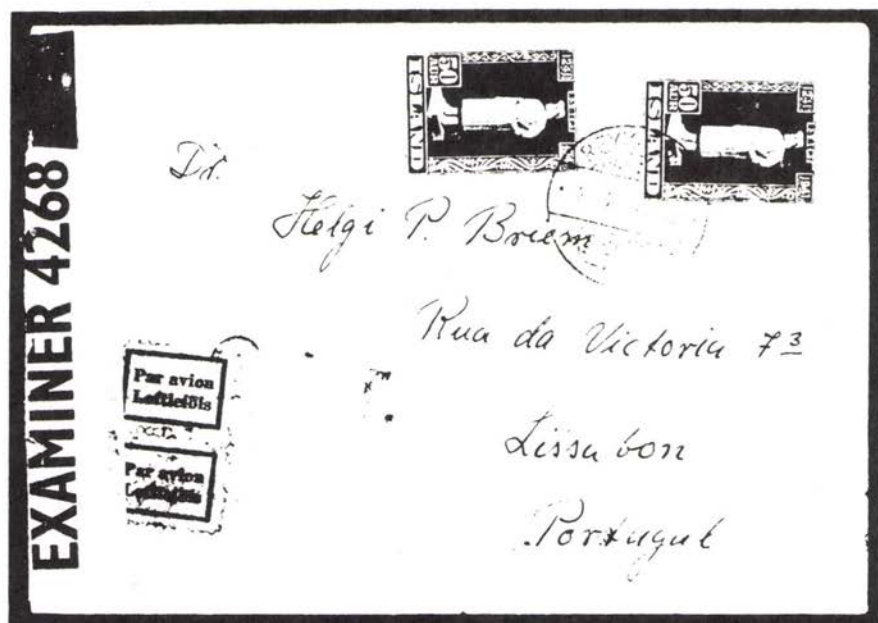 EXAMINER 4268
ISLAND
50
AUR
ISLAND
50
AUR
Dr.
Helgi P. Briem
Rua da Victoria 7³
Lissabon
Portugal
Par avion
Loftleiðis
Par avion
Loftleiðis